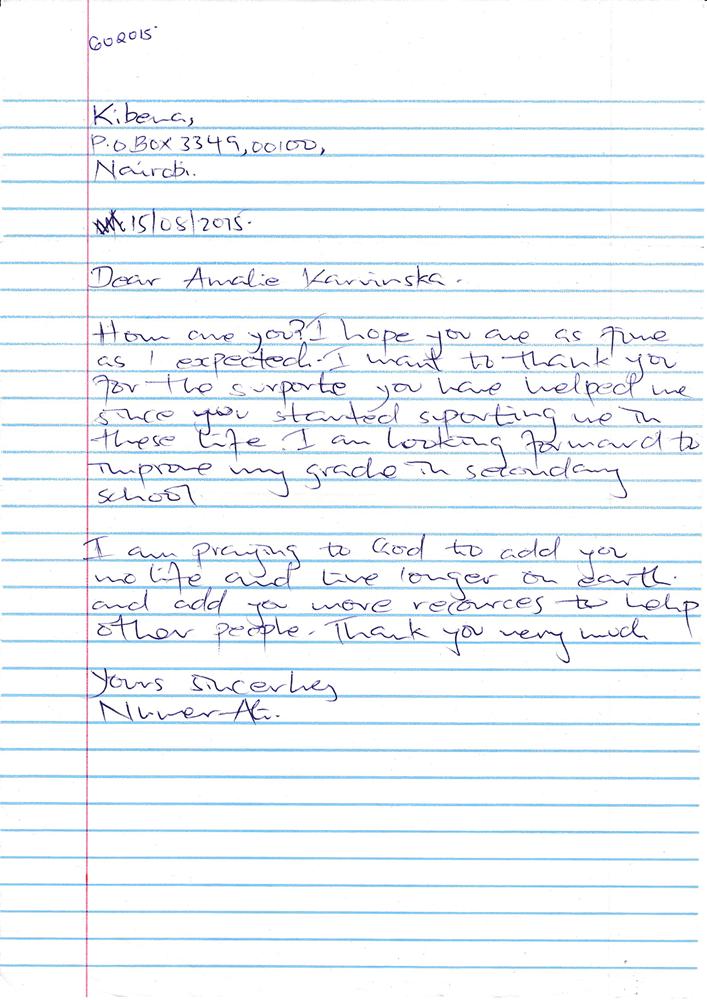 GO2015
Kibera,
P.O BOX 3349,00100,
Nairobi.
15/05/2015.
Dear Amalie Karvinska.
How are you? I hope you are as fine
as I expected. I want to thank you
for the surporte you have helped me
since you started suporting me in
these life. I am looking forward to
improve my grade in secondary
school.
I am praying to God to add you
mo life and live longer on earth.
and add you more recources to help
other people. Thank you very much
Yours sincerley